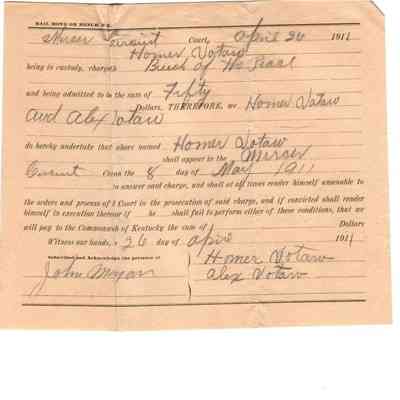 BAIL BOND OR MINUTE, P. E.
Mercer Circuit Court, April 26 1911
Homer Votaw
being in custody, charged Breach of the Peace
and being admitted to in the sum of Fifty
Dollars, THEREFORE, we Homer Votaw
And Alex Votaw
do hereby undertake that above named Homer Votaw
shall appear in the Mercer
Circuit C on the 8 day of May 1911
to answer said charge, and shall at all times render himself amenable to
the orders and process of Court in the prosecution of said charge, and if convicted shall render
himself in execution thereof if he shall fail to perform either of these conditions, that we
will pay to the Commonwealth of Kentucky the sum of Dollars
Witness our hands, 26 day of April 1911
Subscribed and Acknowledge the presence of
Homer Votaw
John
Alex Votaw